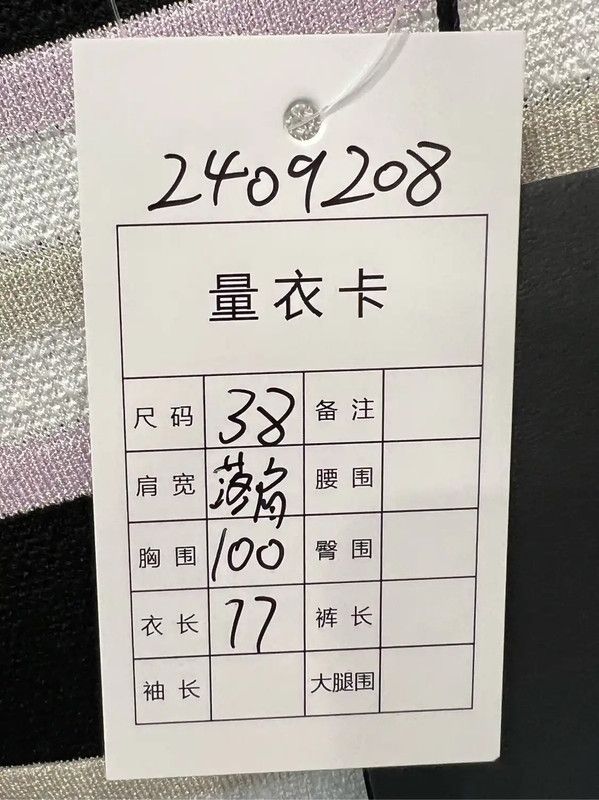 2409208
量衣卡
尺码 38 备注
肩宽 落肩 腰围
胸围 100 臀围
衣长 77 裤长
袖长 大腿围